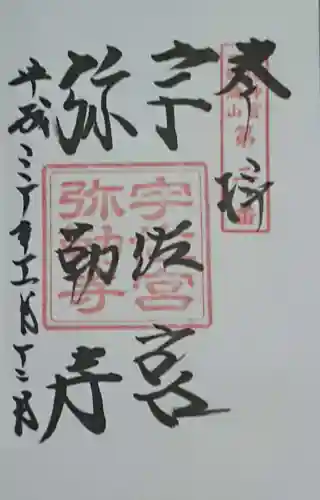 奉拝
第二番
宇佐宮
弥勒寺
宇佐宮
弥勒寺
平成三十年十一月十二日